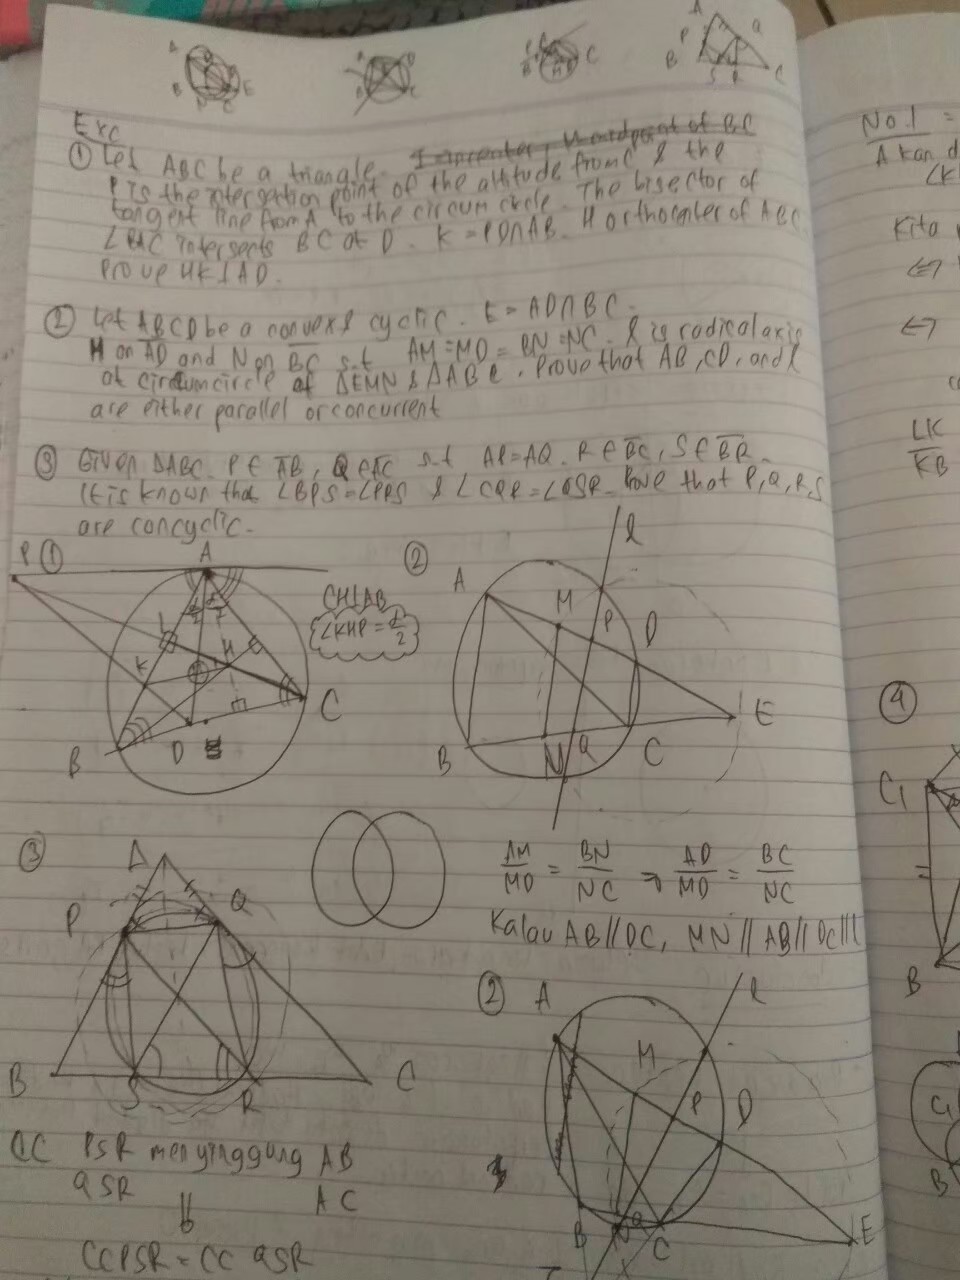 A
B
C
E
P
Q
S
R
Exc
① Let ABC be a triangle. I incenter, M midpoint of BC
P is the intersection point of the altitude from C & the
tangent line from A to the circumcircle. The bisector of
∠BAC intersects BC at D. K = PD∩AB. H orthocenter of ABC.
Prove HK⊥AD.
② Let ABCD be a convex & cyclic. E = AD∩BC.
M on AD and N on BC s.t AM=MD = BN=NC. l is radical axis
of circumcircle of ΔEMN & ΔABE. Prove that AB, CD, and l
are either parallel or concurrent
③ Given ΔABC. P∈AB, Q∈AC s.t AP=AQ. R∈BC, S∈BR.
It is known that ∠BPS=∠PRS & ∠CQR=∠QSR. Prove that P,Q,R,S
are concyclic.
P ① A
CH⊥AB
∠KHP = α/2
L
K
H
B
D
C
②
l
A
M
P
D
E
B
N
Q
C
③
A
P
Q
B
S
R
C
AM/MD = BN/NC ⇒ AD/MD = BC/NC
Kalau AB//DC, MN//AB//DC//l
② A
l
M
P
D
B
N
Q
C
E
CC PSR menyinggung AB
QSR AC
⇓
CC PSR = CC QSR
No.1 =
Akan d
∠K
Kita
⇔
⇔
LK
KB
④
C₁
B
C₁
B